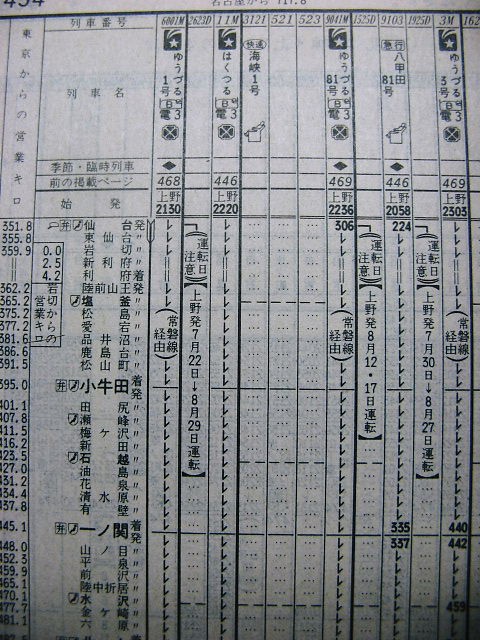 494
名古屋から 717.8
列車番号 6001M 2623D 11M 3121 521 523 9041M 1525D 9103 1925D 3M 162
東京からの営業キロ
列車名
ゆうづる1号
電3
はくつる
電3
快速
海峡1号
ゆうづる81号
電3
急行
八甲田81号
ゆうづる3号
電3
季節・臨時列車 ◆ ◆ ◆
前の掲載ページ 468 446 469 446 469
始発 上野 2130 上野 2220 上野 2236 上野 2058 上野 2303
351.8 弁 仙台発 306 224
355.8 東仙台〃
359.9 0.0 岩切〃
2.5 新利府〃
4.2 利府着
362.2 陸前山王発
岩切からの営業キロ
365.2 塩釜〃
375.2 松島〃
377.2 愛宕〃
381.6 品井沼〃
386.6 鹿島台〃
391.5 松山町〃
395.0 弁 小牛田着発
401.1 田尻〃
407.8 瀬峰〃
411.5 梅ケ沢〃
416.2 新田〃
423.5 石越〃
427.0 油島〃
431.2 花泉〃
434.4 清水原〃
437.8 有壁〃
445.1 弁 一ノ関着 335 440
発 337 442
448.0 山ノ目〃
452.3 平泉〃
459.9 前沢〃
465.1 陸中折居〃
470.1 水沢〃 459
477.7 金ケ崎〃
481.1 六原〃
(常磐線経由)
(常磐線経由)
(運転日注意)
【上野発7月22日→8月29日運転】
(運転日注意)
【上野発8月12・17日運転】
(運転日注意)
【上野発7月30日→8月27日運転】